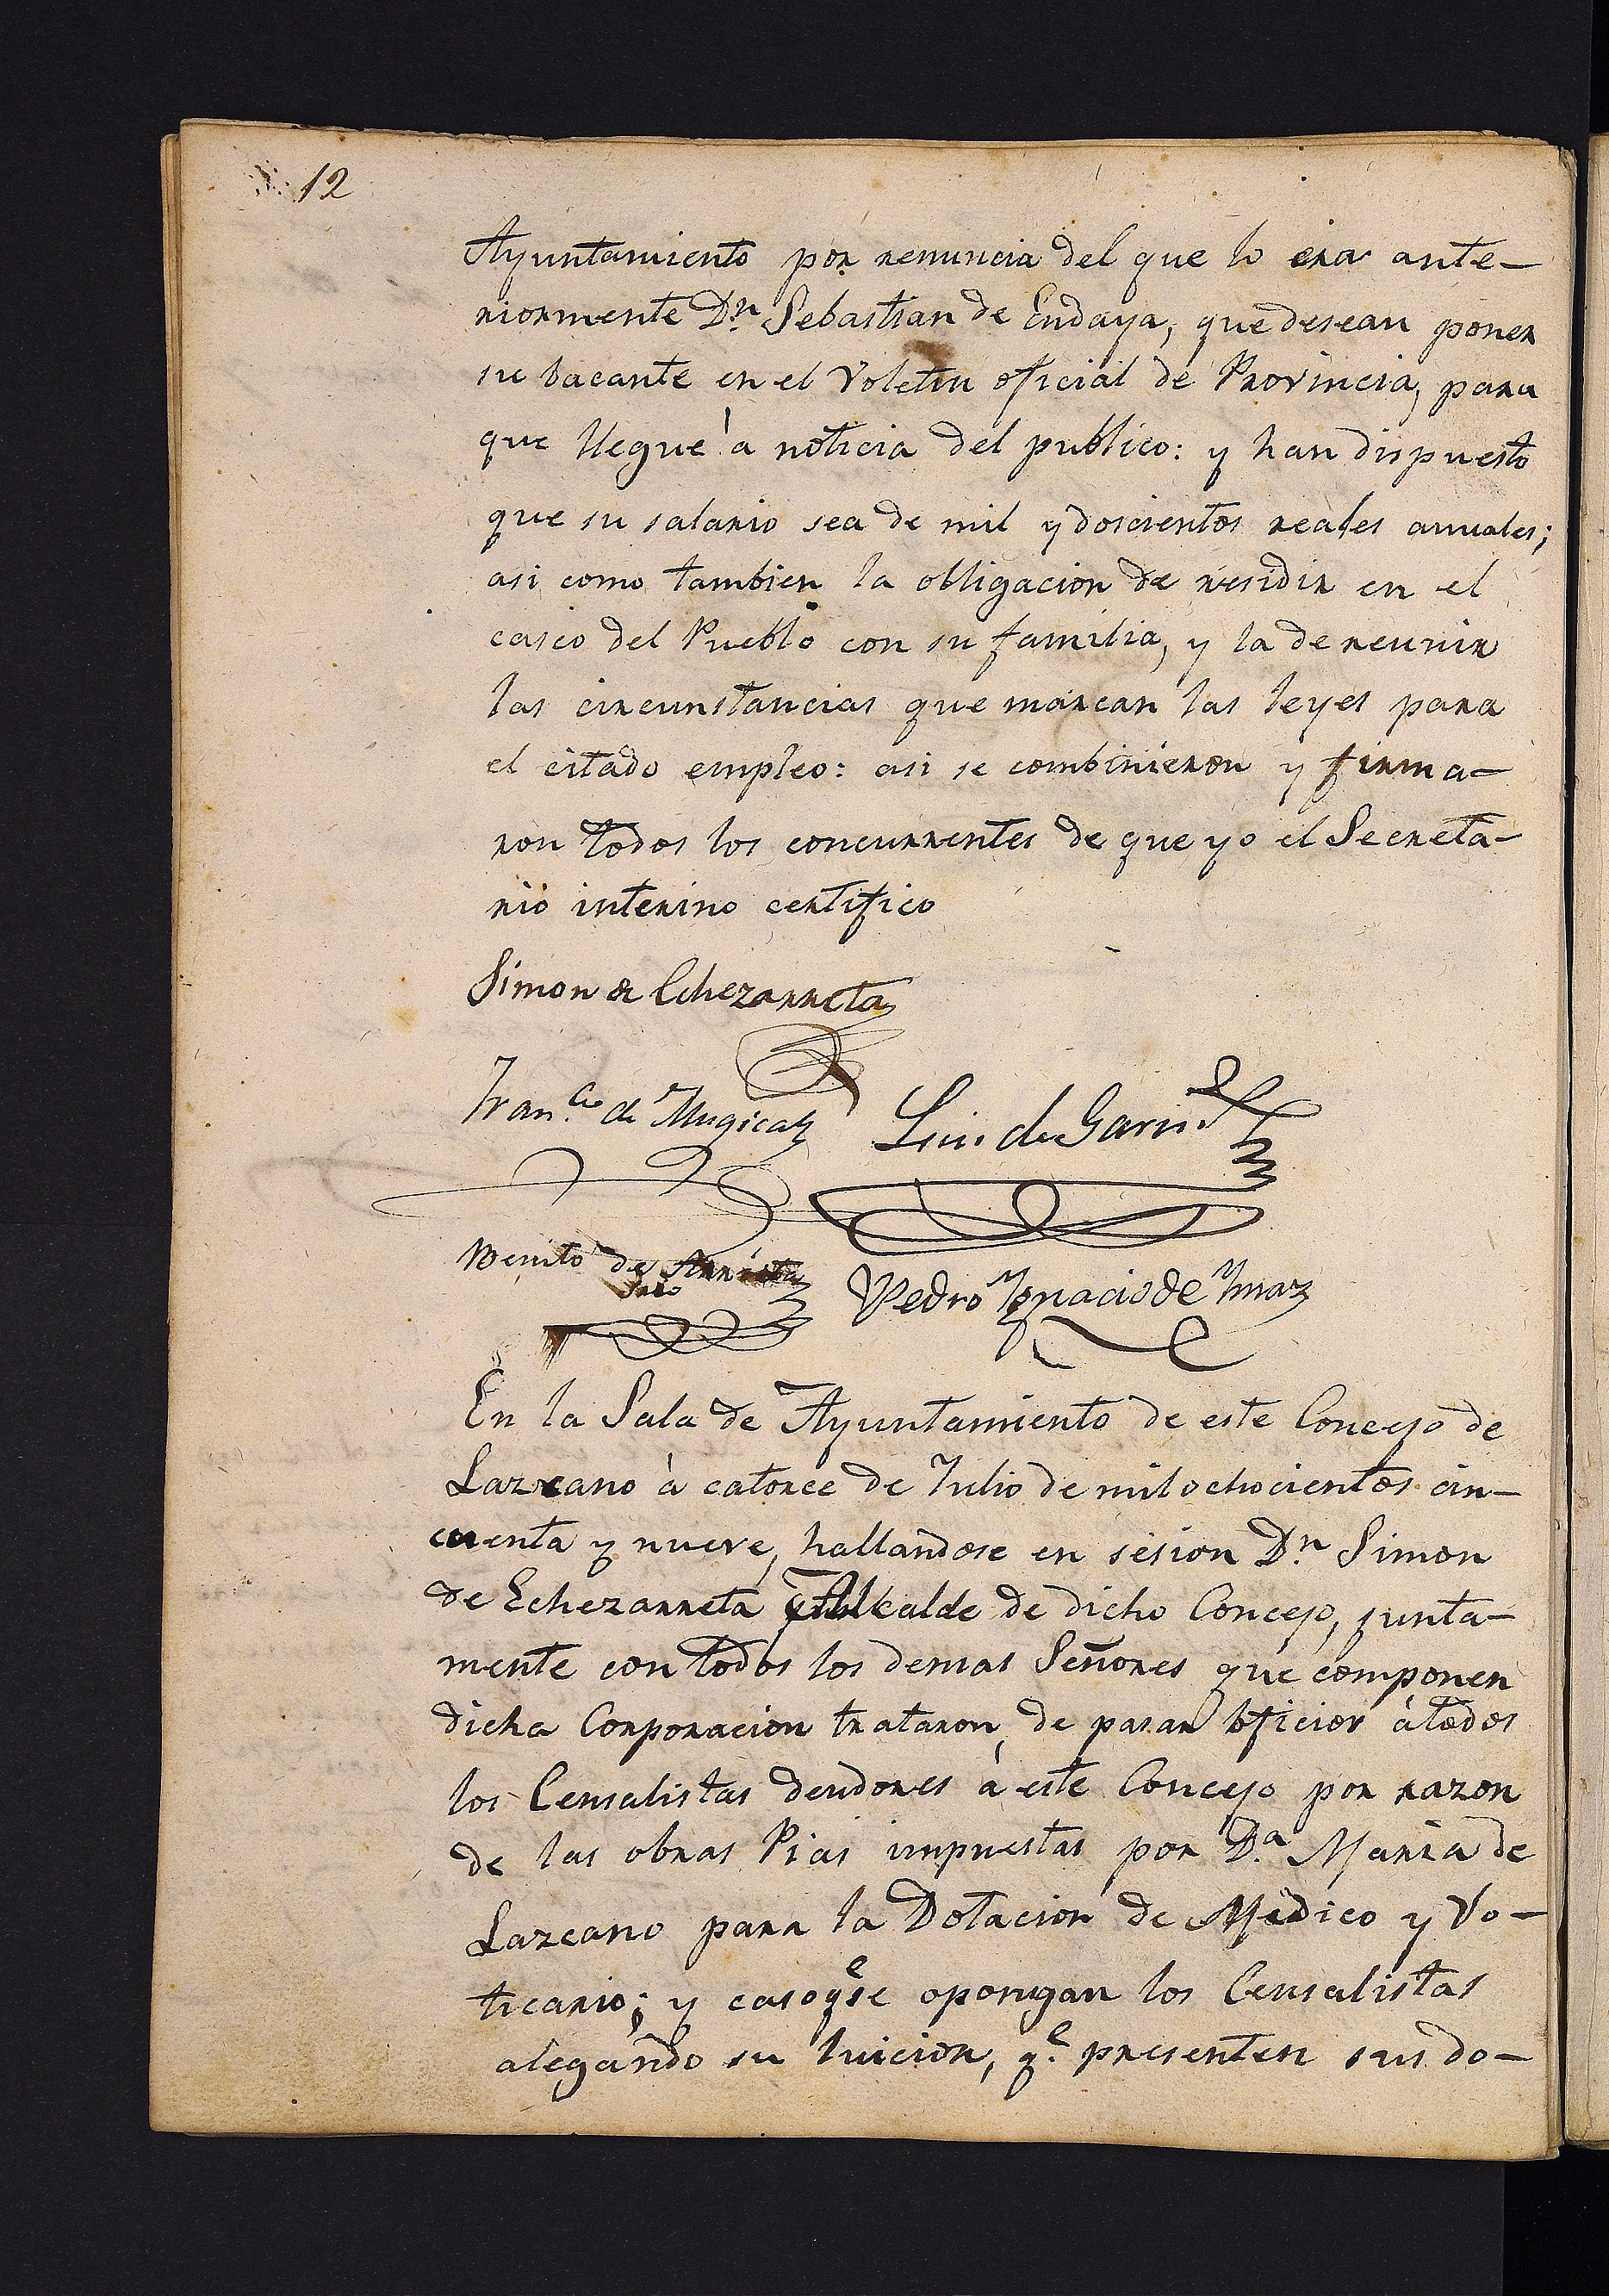 12
Ayuntamiento por renuncia del que lo era ante-
riormente Dn. Sebastian de Endaya, que desean poner
su bacante en el Voletin oficial de Provincia, para
que llegue à noticia del publico: y han dispuesto
que su salario sea de mil y doscientos reales anuales;
asi como tambien la obligacion de residir en el
casco del Pueblo con su familia, y la de reunir
las circunstancias que marcan las leyes para
el citado empleo: asi se combinieron y firma-
ron todos los concurrentes de que yo el Secreta-
rio interino certifico
Simon de Echezarreta
Franco. de Mugica
Luis de Garin
Benito de
Pedro Ygnacio de Ymaz
En la Sala de Ayuntamiento de este Concejo de
Lazcano à catorce de Julio de mil ochocientos cin-
cuenta y nueve, hallandose en sesion Dn. Simon
de Echezarreta Alcalde de dicho Concejo, junta-
mente con todos los demas Señores que componen
dicha Corporacion trataron, de pasar oficios à todos
los Censalistas deudores à este Concejo por razon
de las obras Pias impuestas por Da. Maria de
Lazcano para la Dotacion de Medico y Vo-
ticario; y caso qe se opongan los Censalistas
alegando su luicion, qe. presenten sus do-